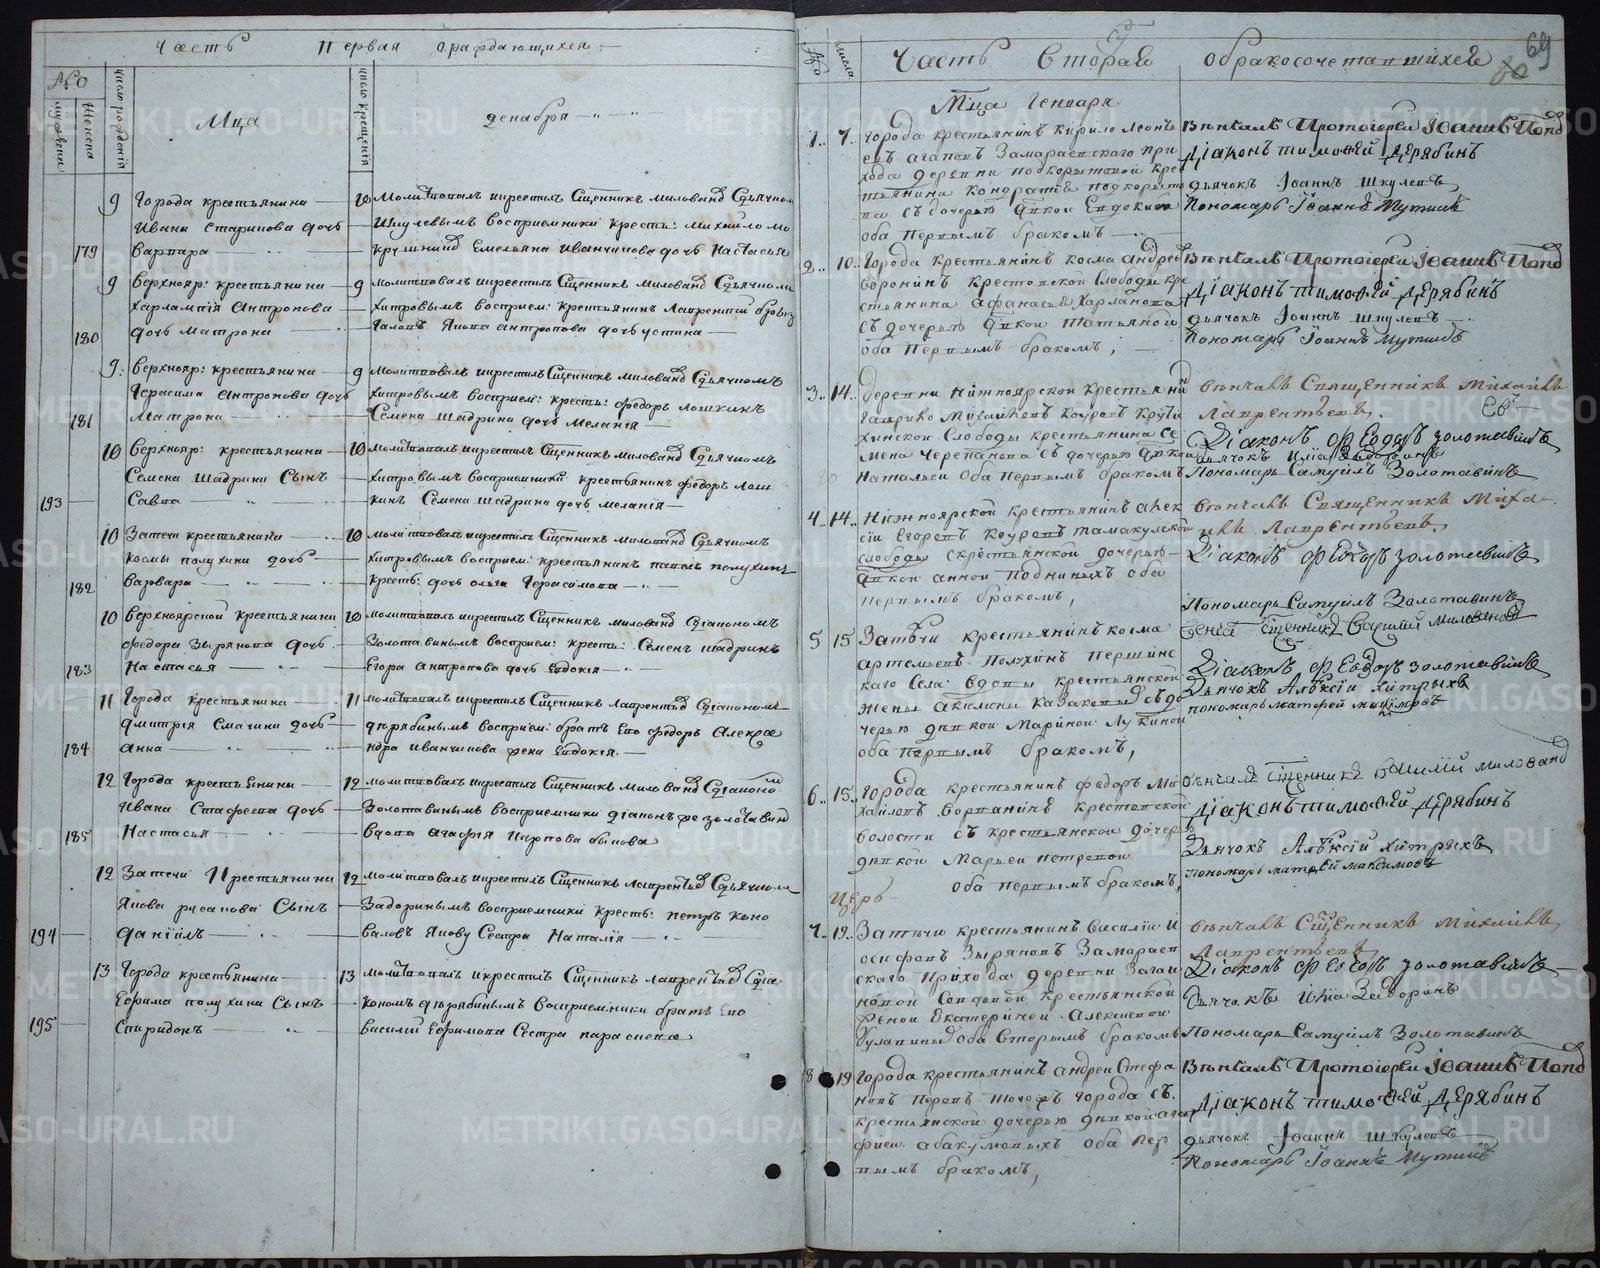 Часть Первая Ораждающихся
№о
мужеска
женска
число рождения
число крещения
Мца декабря
9 Города крестьянина
Ивана Старикова дочь
179 Варвара
10 Молитвовалъ икрестилъ Сщенникъ Миловановъ Сдьячкомъ
Шкулевымъ восприемники Крестъ: Михайло
Емельяна Иванчикова дочь Настасья
9 Верхнояр: крестьянина
Харлампия Антропова
180 дочь Матрона
9 молитвовалъ икрестилъ Сщенникъ Миловановъ Сдьячкомъ
Хитровымъ восприем: крестьянинъ Лаврентий
Якова антропова дочь устина
9 Верхнояр: крестьянина
Герасима Антропова дочь
181 Матрона
9 молитвовалъ икрестилъ Сщенникъ Миловановъ Сдьячкомъ
Хитровымъ восприем: кресть: федоръ лошкинъ
Семена Шадрина дочь Мелания
10 Верхнояр: крестьянина
Семена Шадрина Сынъ
193 Савва
10 молитвовалъ икрестилъ Сщенникъ Миловановъ Сдьячкомъ
Хитровымъ восприемники крестьянинъ федоръ лош
кинъ Семена шадрина дочь мелания
10 Затечи крестьянина
Космы полухина дочь
182 Варвара
10 молитвовалъ икрестилъ Сщенникъ Миловановъ Сдьячкомъ
Хитровымъ восприем: крестьянинъ полухинъ
кресть: дочь ольга Герасимова
10 Верхноярской крестьянина
федора Зырянова дочь
183 Настасья
10 молитвовалъ икрестилъ Сщенникъ Миловановъ Сдиакономъ
Золотавинымъ восприем: кресть: Семенъ шадринъ
Егора антропова дочь Евдокия
11 Города крестьянина
дмитрия Смагина дочь
184 анна
11 молитвовалъ икрестилъ Сщенникъ лаврентьевъ Сдиакономъ
дерябинымъ восприем: братъ Его федоръ Алекса
ндра иванчикова жена Евдокия
12 Города крестьянина
Ивана Стафеева дочь
185 Настасья
12 молитвовалъ икрестилъ Сщенникъ Миловановъ Сдиакономъ
Золотавинымъ восприемники диаконъ фе золотавинъ
вдова Агафия Карпова быкова
12 Затечи Крестьянина
Якова русакова Сынъ
194 данiилъ
12 молитвовалъ икрестилъ Сщенникъ Лаврентьевъ Сдьячкомъ
Задоринымъ восприемники кресть: петръ коно
валовъ Якову Сестра Наталiя
13 Города крестьянина
Ефрима полухина Сынъ
195 Спиридонъ
13 молитвовалъ икрестилъ Сщенникъ лаврентьевъ Сдiа
кономъ дерябинымъ Восприемники братъ Его
василий Ефримова Сестра параскева
69
№о
число
Часть Вторая Обракосочетавшихся
Мца Генваря
1. 7. Города крестьянинъ Кирило Леонть
евъ агаповъ Замараевскаго При
хода деревни подкорытовой кре
стьянина Кондратья подкорыто
ва съ дочерью дѣвкой Евдокией
оба Первымъ бракомъ
Вѣнчалъ Протоиерей Iоаннъ Поповъ
Дiаконъ тимофей Дерябинъ
дьячокъ Iоаннъ Шкулевъ
Пономарь Iоаннъ Мутинъ
2. 10. Города крестьянинъ Косма андреевъ
воронинъ Крестовской Слободы кре
стьянина Афанасья Харланова
съ дочерью дѣвкой Татьяной
оба Первымъ бракомъ,
Вѣнчалъ Протоиерей Iоаннъ Поповъ
Дiаконъ тимофей Дерябинъ
дьячокъ Iоаннъ Шкулевъ
Пономарь Iоаннъ Мутинъ
3. 14. деревни нижноярской Крестьянинъ
Гаврило Михайловъ Коуровъ Крути
хинской Слободы крестьянина Се
мена Черепанова Съ дочерью дѣвкой
Натальей Оба Первымъ бракомъ
вѣнчалъ Священникъ Михаилъ
Лаврентьевъ.
Дiаконъ Феодоръ золотавинъ
дьячокъ Илiа Задоринъ
Пономарь Самуилъ Золотавинъ
4. 14. Нижноярской крестьянинъ алек
сiй Егоровъ Коуровъ тамакулской
слободы скрестьянской дочерью
дѣвкой анной подкиныхъ оба
первымъ бракомъ,
вѣнчалъ Священникъ Миха
илъ Лаврентьевъ,
Дiаконъ Феодоръ золотавинъ
Пономарь Самуилъ Золотавинъ
5 15 Затѣчи крестьянинъ косма
артемьевъ Полухинъ першинс
каго Села вдовы крестьянской
жены акилины казаковы съ до
черью дѣвкой Мариной Лукиной
оба первымъ бракомъ,
Сщенникъ Василий Миловановъ
Дiаконъ Феодоръ золотавинъ
Дьячокъ Алѣксiй хитрыхъ
пономарь матфей максимовъ
6. 15. Города крестьянинъ федоръ Ми
хайловъ Ворпанинъ крестовской
волости съ крестьянской дочерью
дѣвкой Марьей петровой
оба первымъ бракомъ,
вѣнчалъ Сщенникъ василiй миловановъ
Дiаконъ тимофей Дерябинъ
Дьячокъ Алѣксiй хитрыхъ
пономарь матфей максимовъ
7. 19. Затѣчи крестьянинъ Василiй И
осифовъ Зыряновъ Замараев
скаго Прихода деревни Загаи
новой Солдовой Крестьянской
женой Екатериной Алексеевой
булапины Оба Вторымъ бракомъ
вѣнчалъ Сщенникъ Михаилъ
Лаврентьевъ
Дiаконъ Феодоръ золотавинъ
Дьячокъ Илiа Задоринъ
Пономарь Самуилъ Золотавинъ
8 19 Города крестьянинъ андрей Стефа
новъ Перовъ Города съ
крестьянской дочерью дѣвкой ага
фiей абакумовыхъ оба пер
вымъ бракомъ,
Вѣнчалъ Протоиерей Iоаннъ Поповъ
Дiаконъ тимофей Дерябинъ
дьячокъ Iоаннъ Шкулевъ
Пономарь Iоаннъ Мутинъ
METRIKI.GASO-URAL.RU